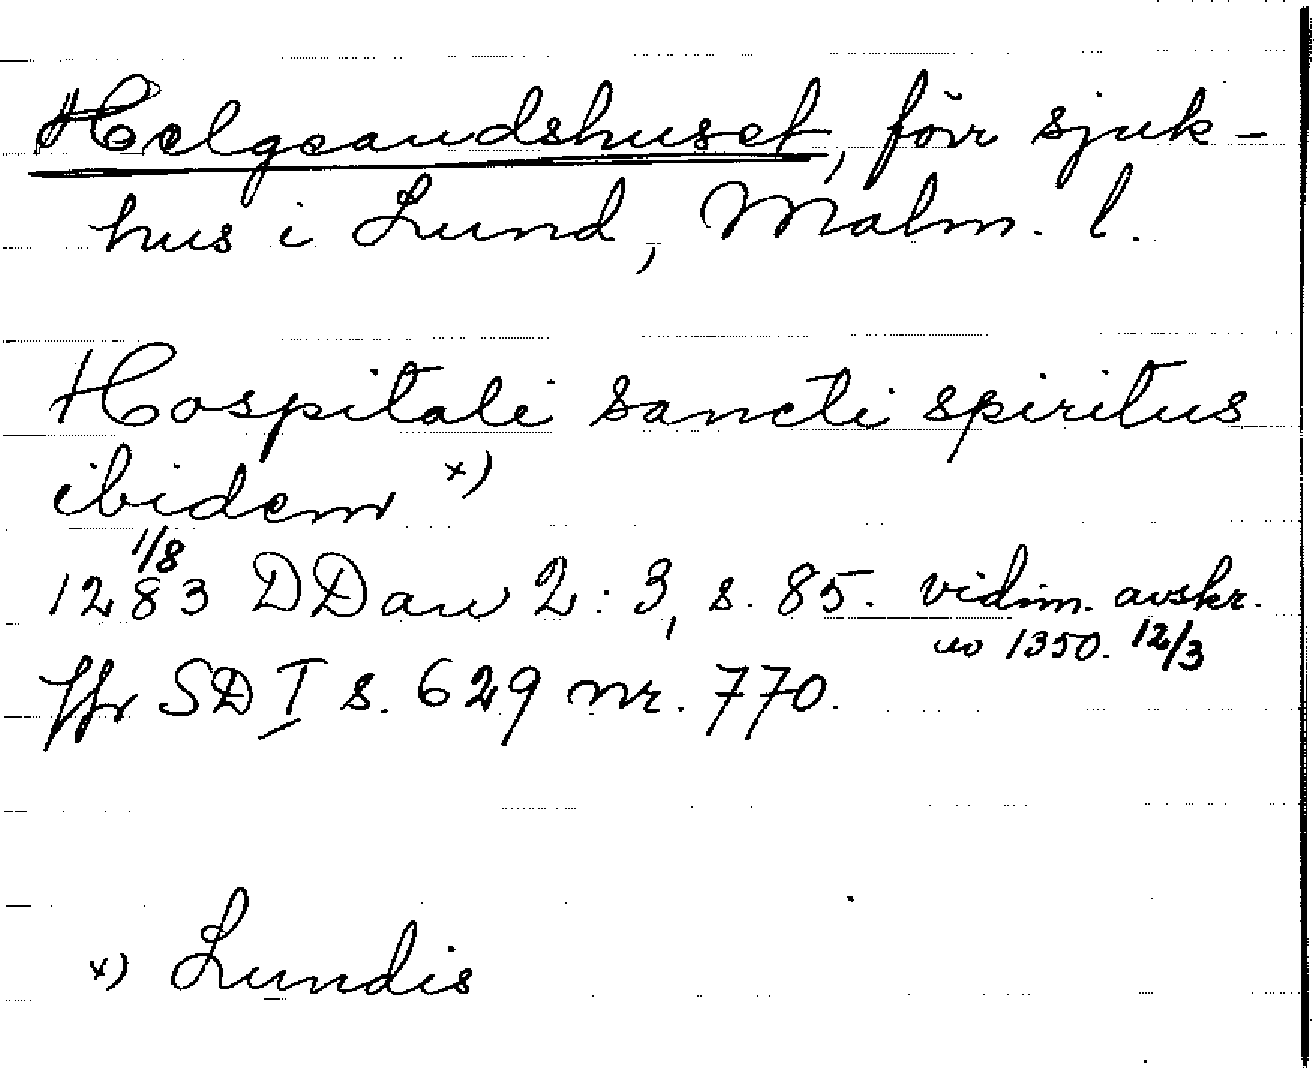 Helgeandshuset, förr sjuk-
hus i Lund, Malm. l.
Hospitali sancti spiritus
ibidem x)
1283 1/8 DDan 2:3, s. 85. vidim. avskr.
1350. 12/3
Jfr SD I s. 629 nr. 770.
x) Lundis